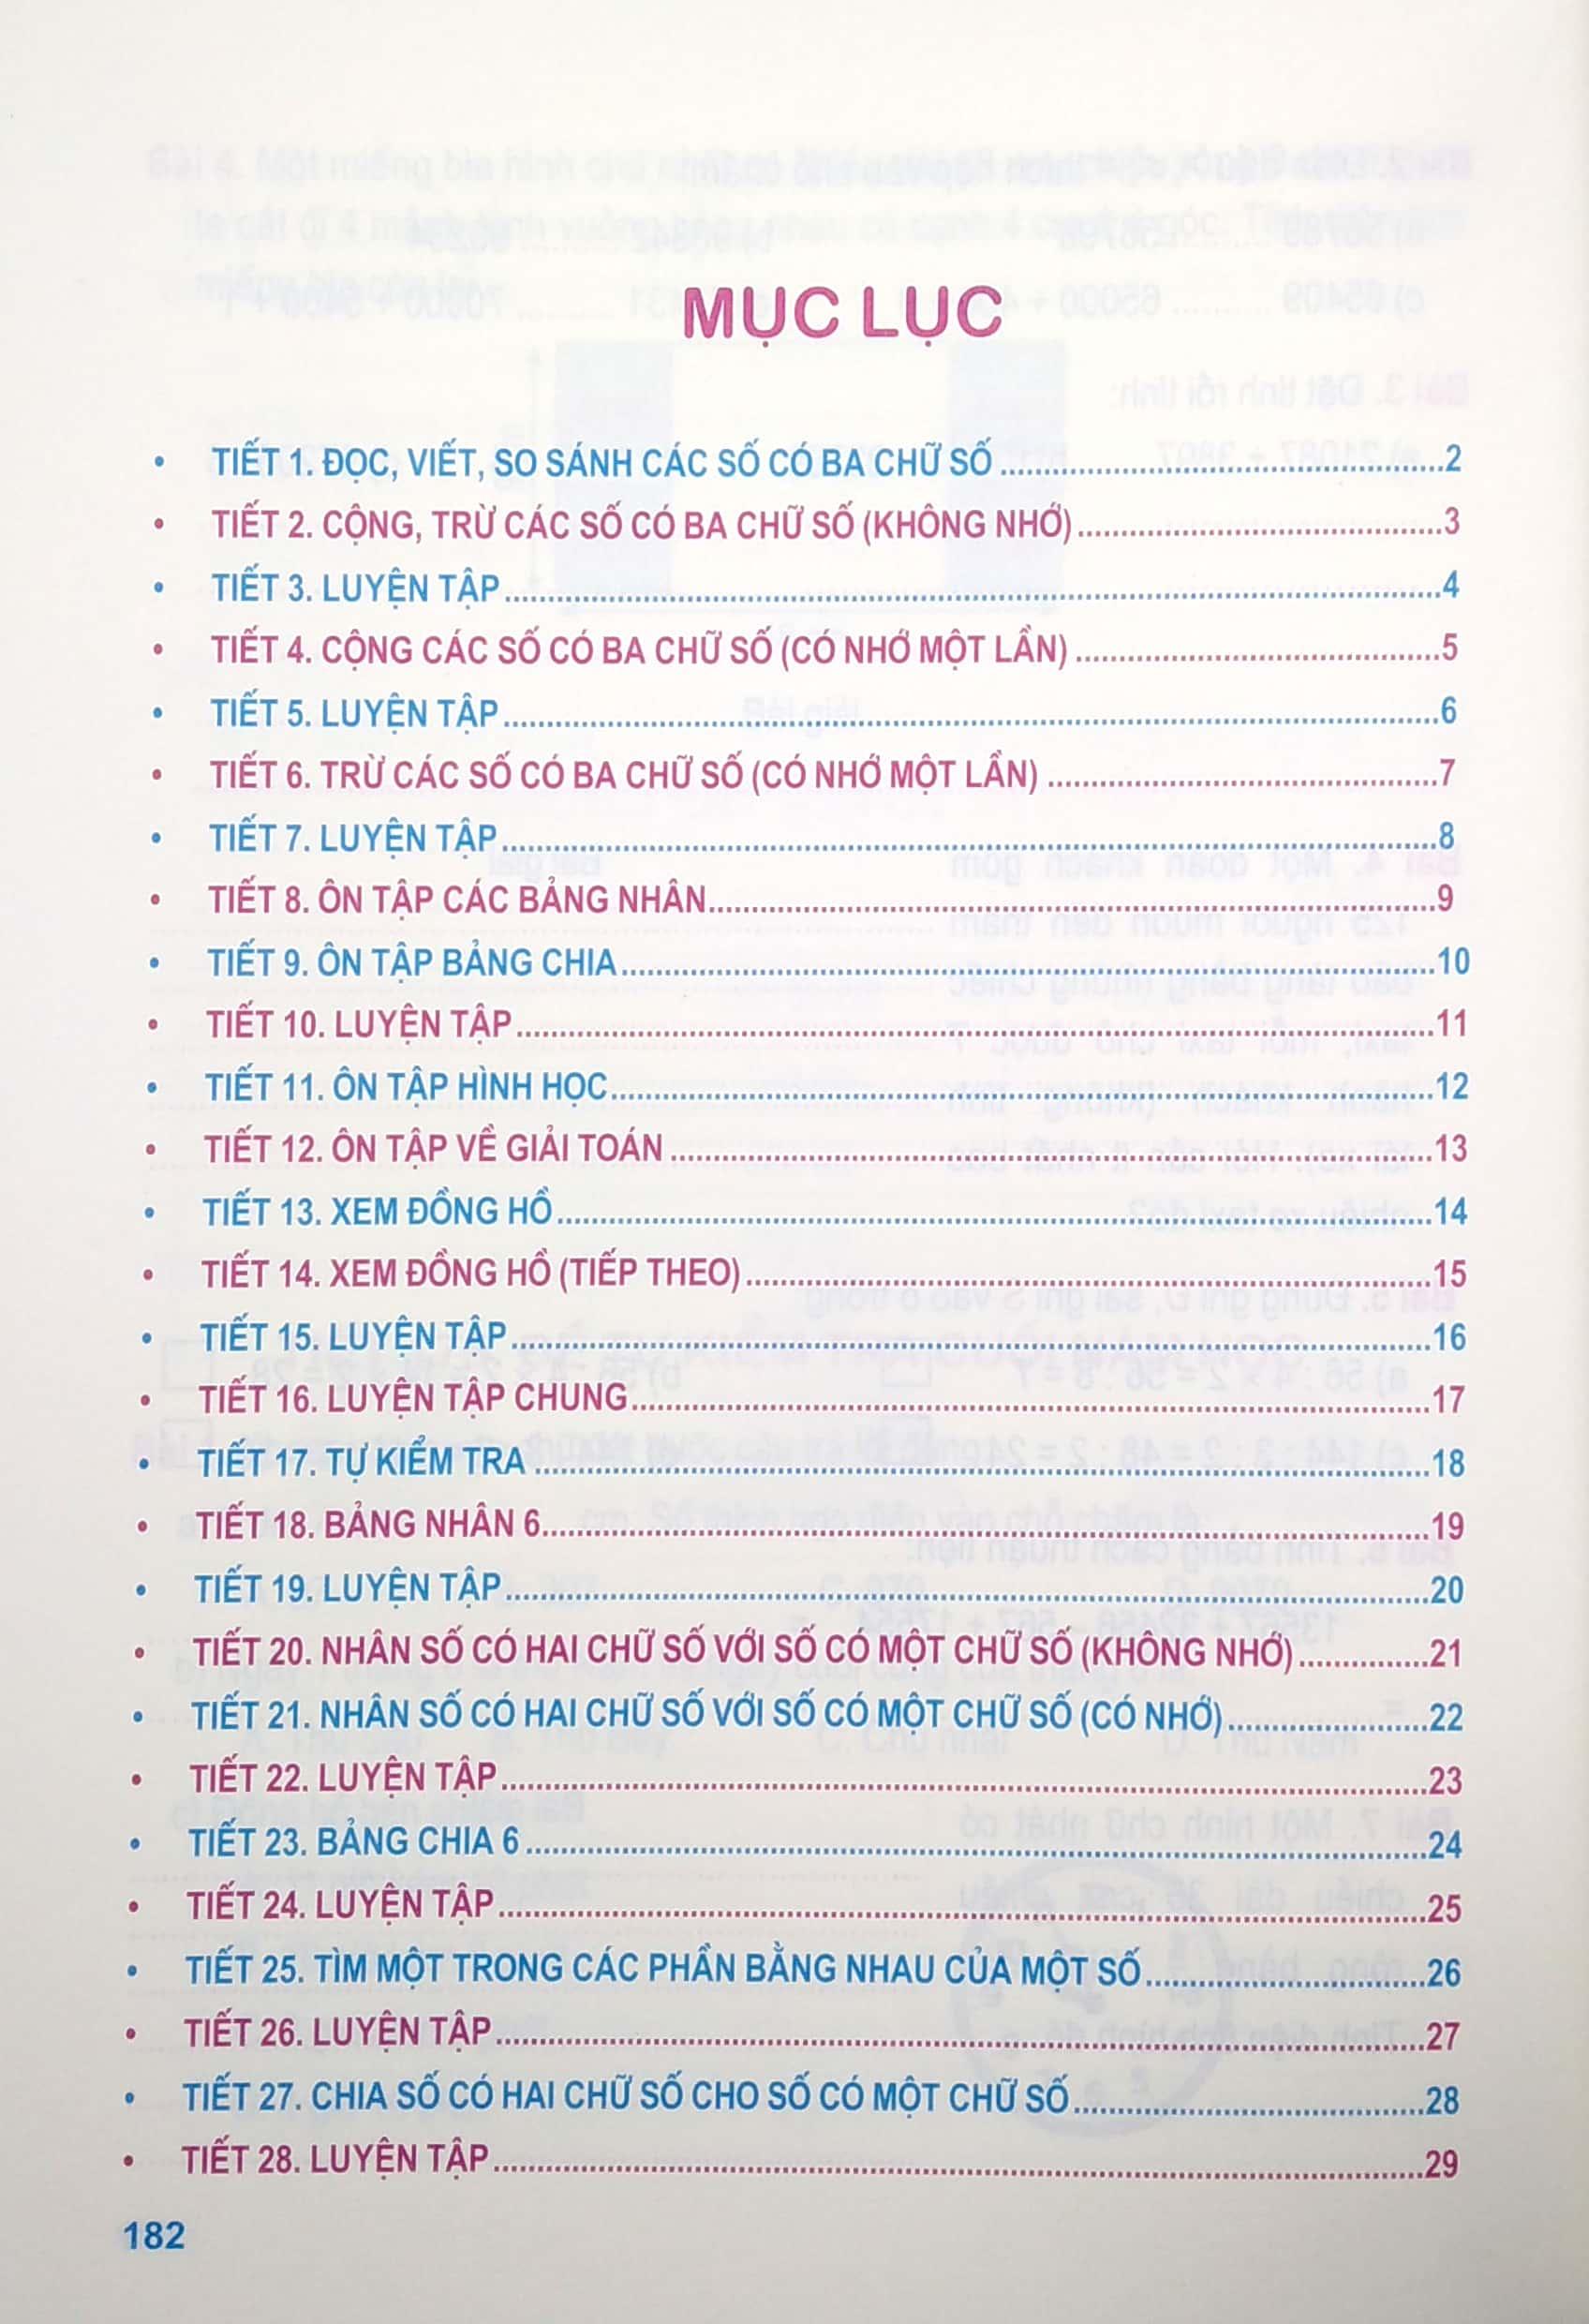 MỤC LỤC
• TIẾT 1. ĐỌC, VIẾT, SO SÁNH CÁC SỐ CÓ BA CHỮ SỐ ........ 2
• TIẾT 2. CỘNG, TRỪ CÁC SỐ CÓ BA CHỮ SỐ (KHÔNG NHỚ) ........ 3
• TIẾT 3. LUYỆN TẬP ........ 4
• TIẾT 4. CỘNG CÁC SỐ CÓ BA CHỮ SỐ (CÓ NHỚ MỘT LẦN) ........ 5
• TIẾT 5. LUYỆN TẬP ........ 6
• TIẾT 6. TRỪ CÁC SỐ CÓ BA CHỮ SỐ (CÓ NHỚ MỘT LẦN) ........ 7
• TIẾT 7. LUYỆN TẬP ........ 8
• TIẾT 8. ÔN TẬP CÁC BẢNG NHÂN ........ 9
• TIẾT 9. ÔN TẬP BẢNG CHIA ........ 10
• TIẾT 10. LUYỆN TẬP ........ 11
• TIẾT 11. ÔN TẬP HÌNH HỌC ........ 12
• TIẾT 12. ÔN TẬP VỀ GIẢI TOÁN ........ 13
• TIẾT 13. XEM ĐỒNG HỒ ........ 14
• TIẾT 14. XEM ĐỒNG HỒ (TIẾP THEO) ........ 15
• TIẾT 15. LUYỆN TẬP ........ 16
• TIẾT 16. LUYỆN TẬP CHUNG ........ 17
• TIẾT 17. TỰ KIỂM TRA ........ 18
• TIẾT 18. BẢNG NHÂN 6 ........ 19
• TIẾT 19. LUYỆN TẬP ........ 20
• TIẾT 20. NHÂN SỐ CÓ HAI CHỮ SỐ VỚI SỐ CÓ MỘT CHỮ SỐ (KHÔNG NHỚ) ........ 21
• TIẾT 21. NHÂN SỐ CÓ HAI CHỮ SỐ VỚI SỐ CÓ MỘT CHỮ SỐ (CÓ NHỚ) ........ 22
• TIẾT 22. LUYỆN TẬP ........ 23
• TIẾT 23. BẢNG CHIA 6 ........ 24
• TIẾT 24. LUYỆN TẬP ........ 25
• TIẾT 25. TÌM MỘT TRONG CÁC PHẦN BẰNG NHAU CỦA MỘT SỐ ........ 26
• TIẾT 26. LUYỆN TẬP ........ 27
• TIẾT 27. CHIA SỐ CÓ HAI CHỮ SỐ CHO SỐ CÓ MỘT CHỮ SỐ ........ 28
• TIẾT 28. LUYỆN TẬP ........ 29
182